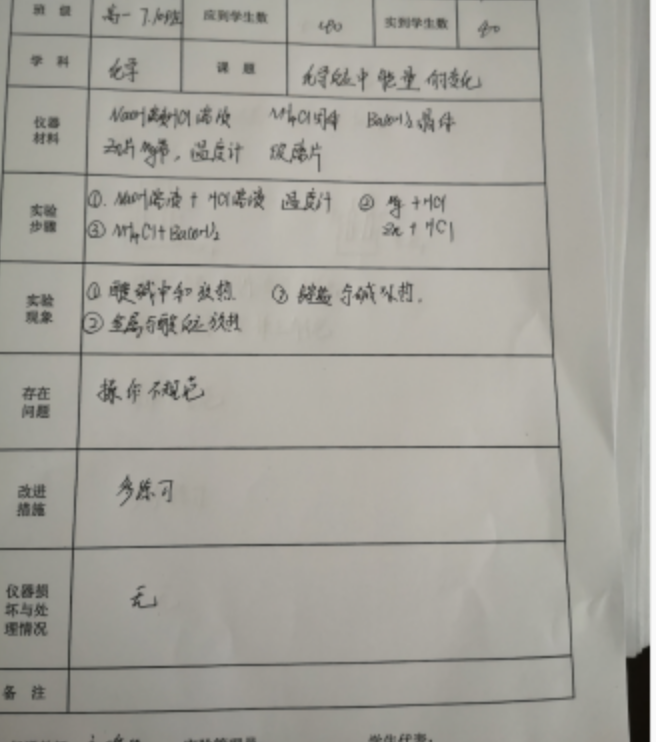 班 级 高一7.10班 应到学生数 480 实到学生数 480
学 科 化学 课 题 化学反应中能量的变化
仪器材料 NaOH溶液HCl溶液 NH4Cl固体 Ba(OH)2晶体
Zn片 Mg带，温度计 玻璃片
实验步骤 ①. NaOH溶液 + HCl溶液 温度计 ② Mg + HCl
③ NH4Cl+Ba(OH)2 Zn + HCl
实验现象 ① 酸碱中和放热 ③ 铵盐与碱吸热.
② 金属与酸反应放热
存在问题 操作不规范
改进措施 多练习
仪器损坏与处理情况 无
备 注
学生代表: